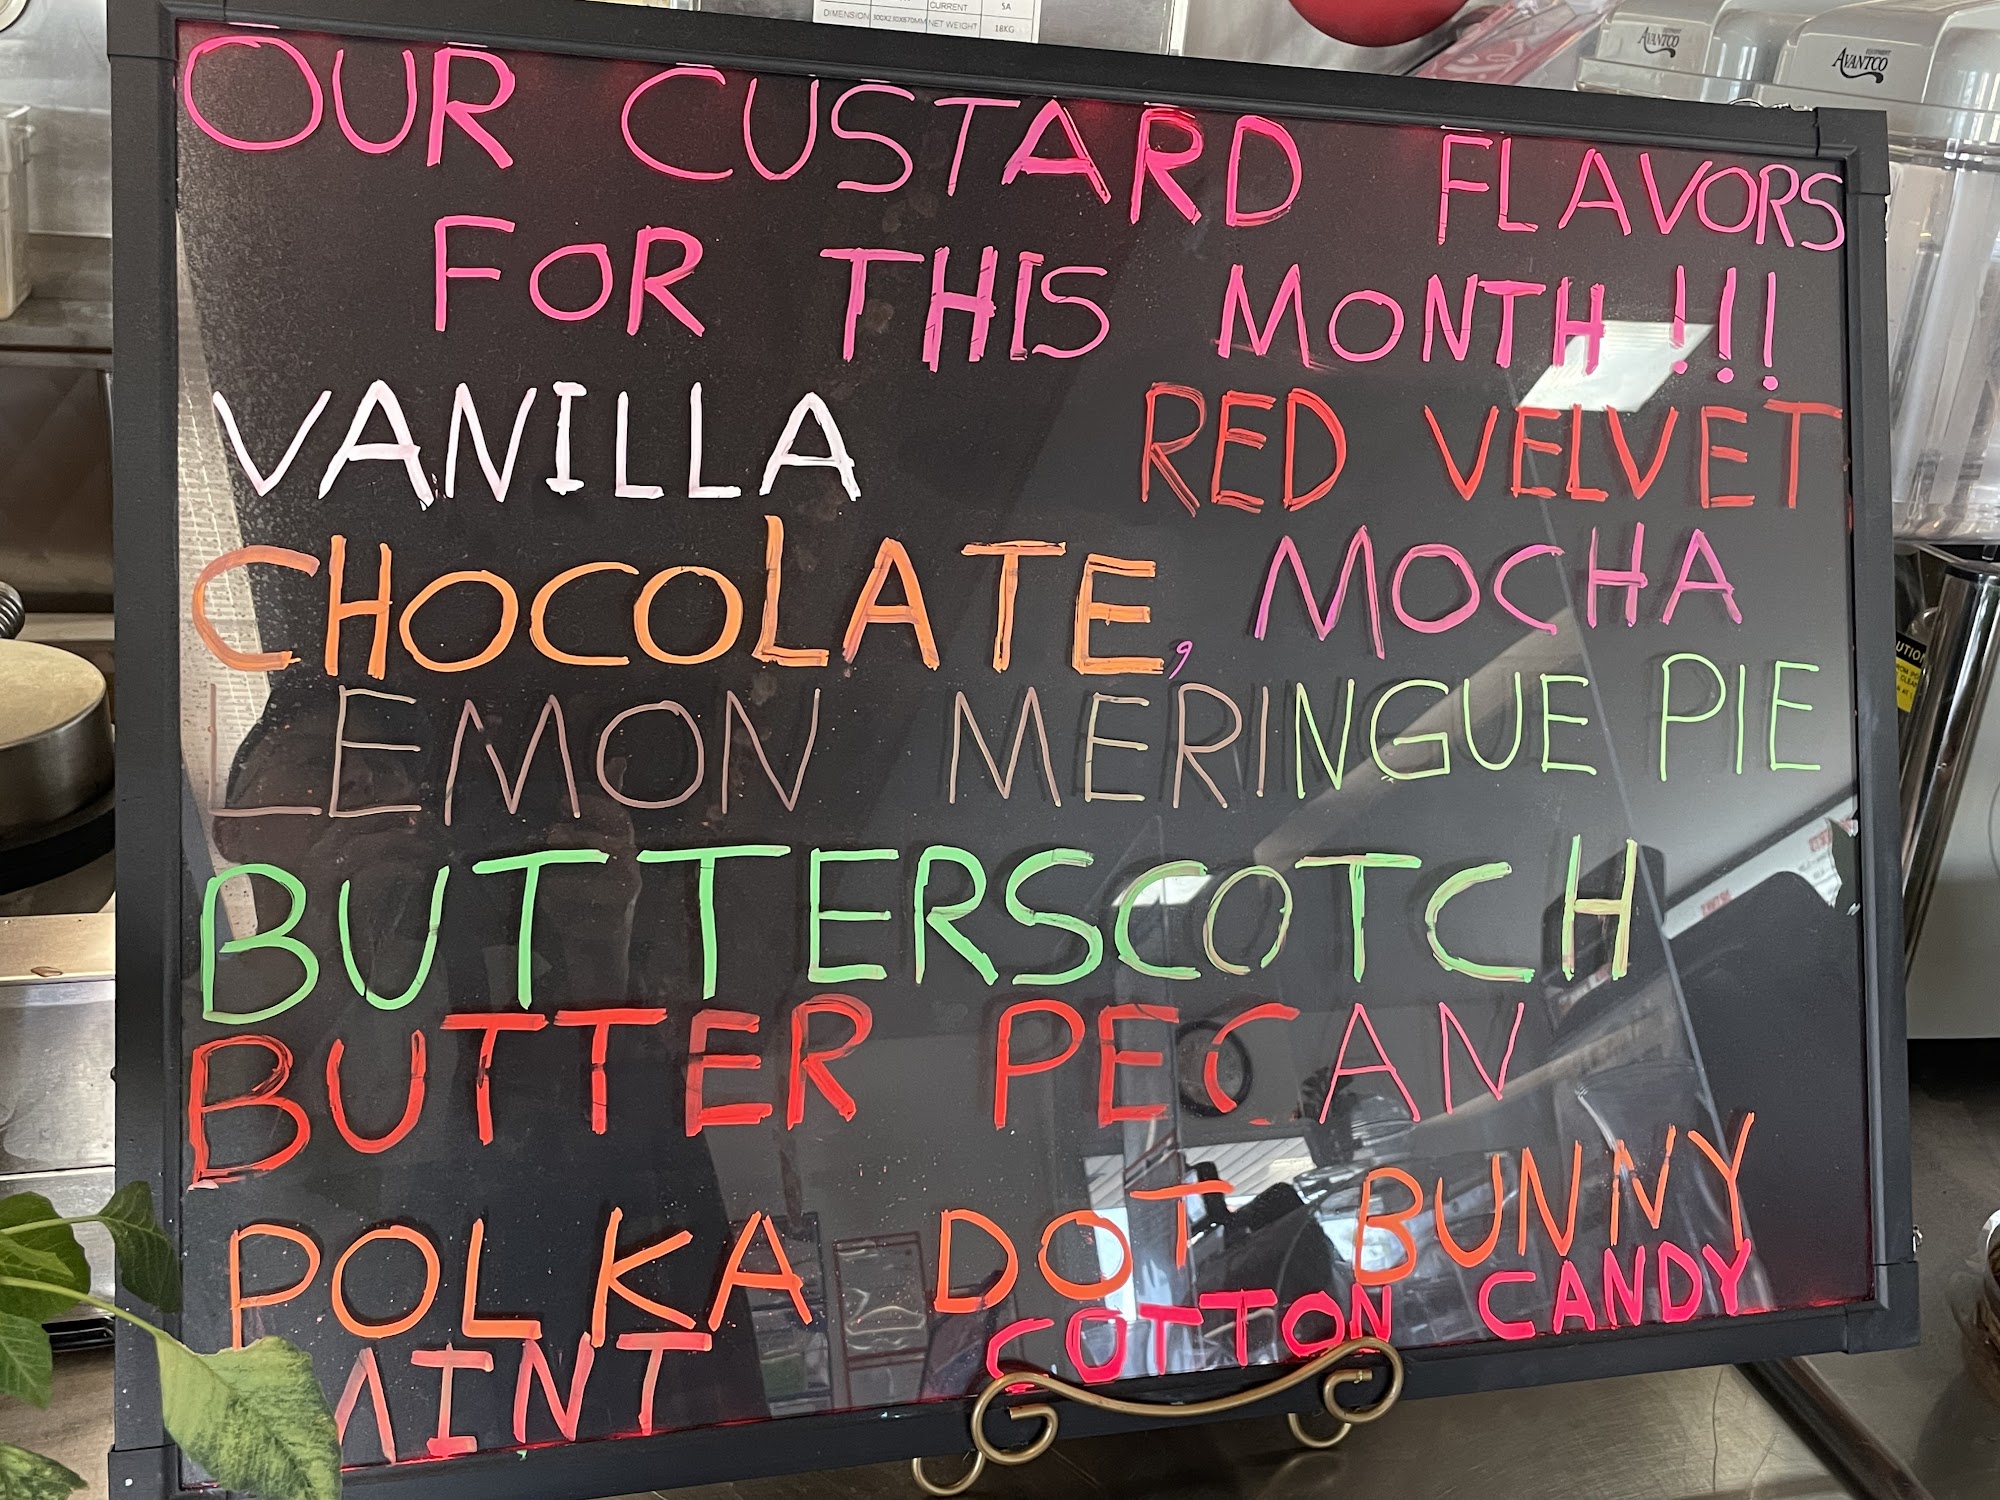 CURRENT 5A
DIMENSION 300X230X670MM NET WEIGHT 18KG
AVANTCO
EQUIPMENT
AVANTCO
OUR CUSTARD FLAVORS
FOR THIS MONTH!!!
VANILLA RED VELVET
CHOCOLATE, MOCHA
LEMON MERINGUE PIE
BUTTERSCOTCH
BUTTER PECAN
POLKA DOT BUNNY
MINT COTTON CANDY